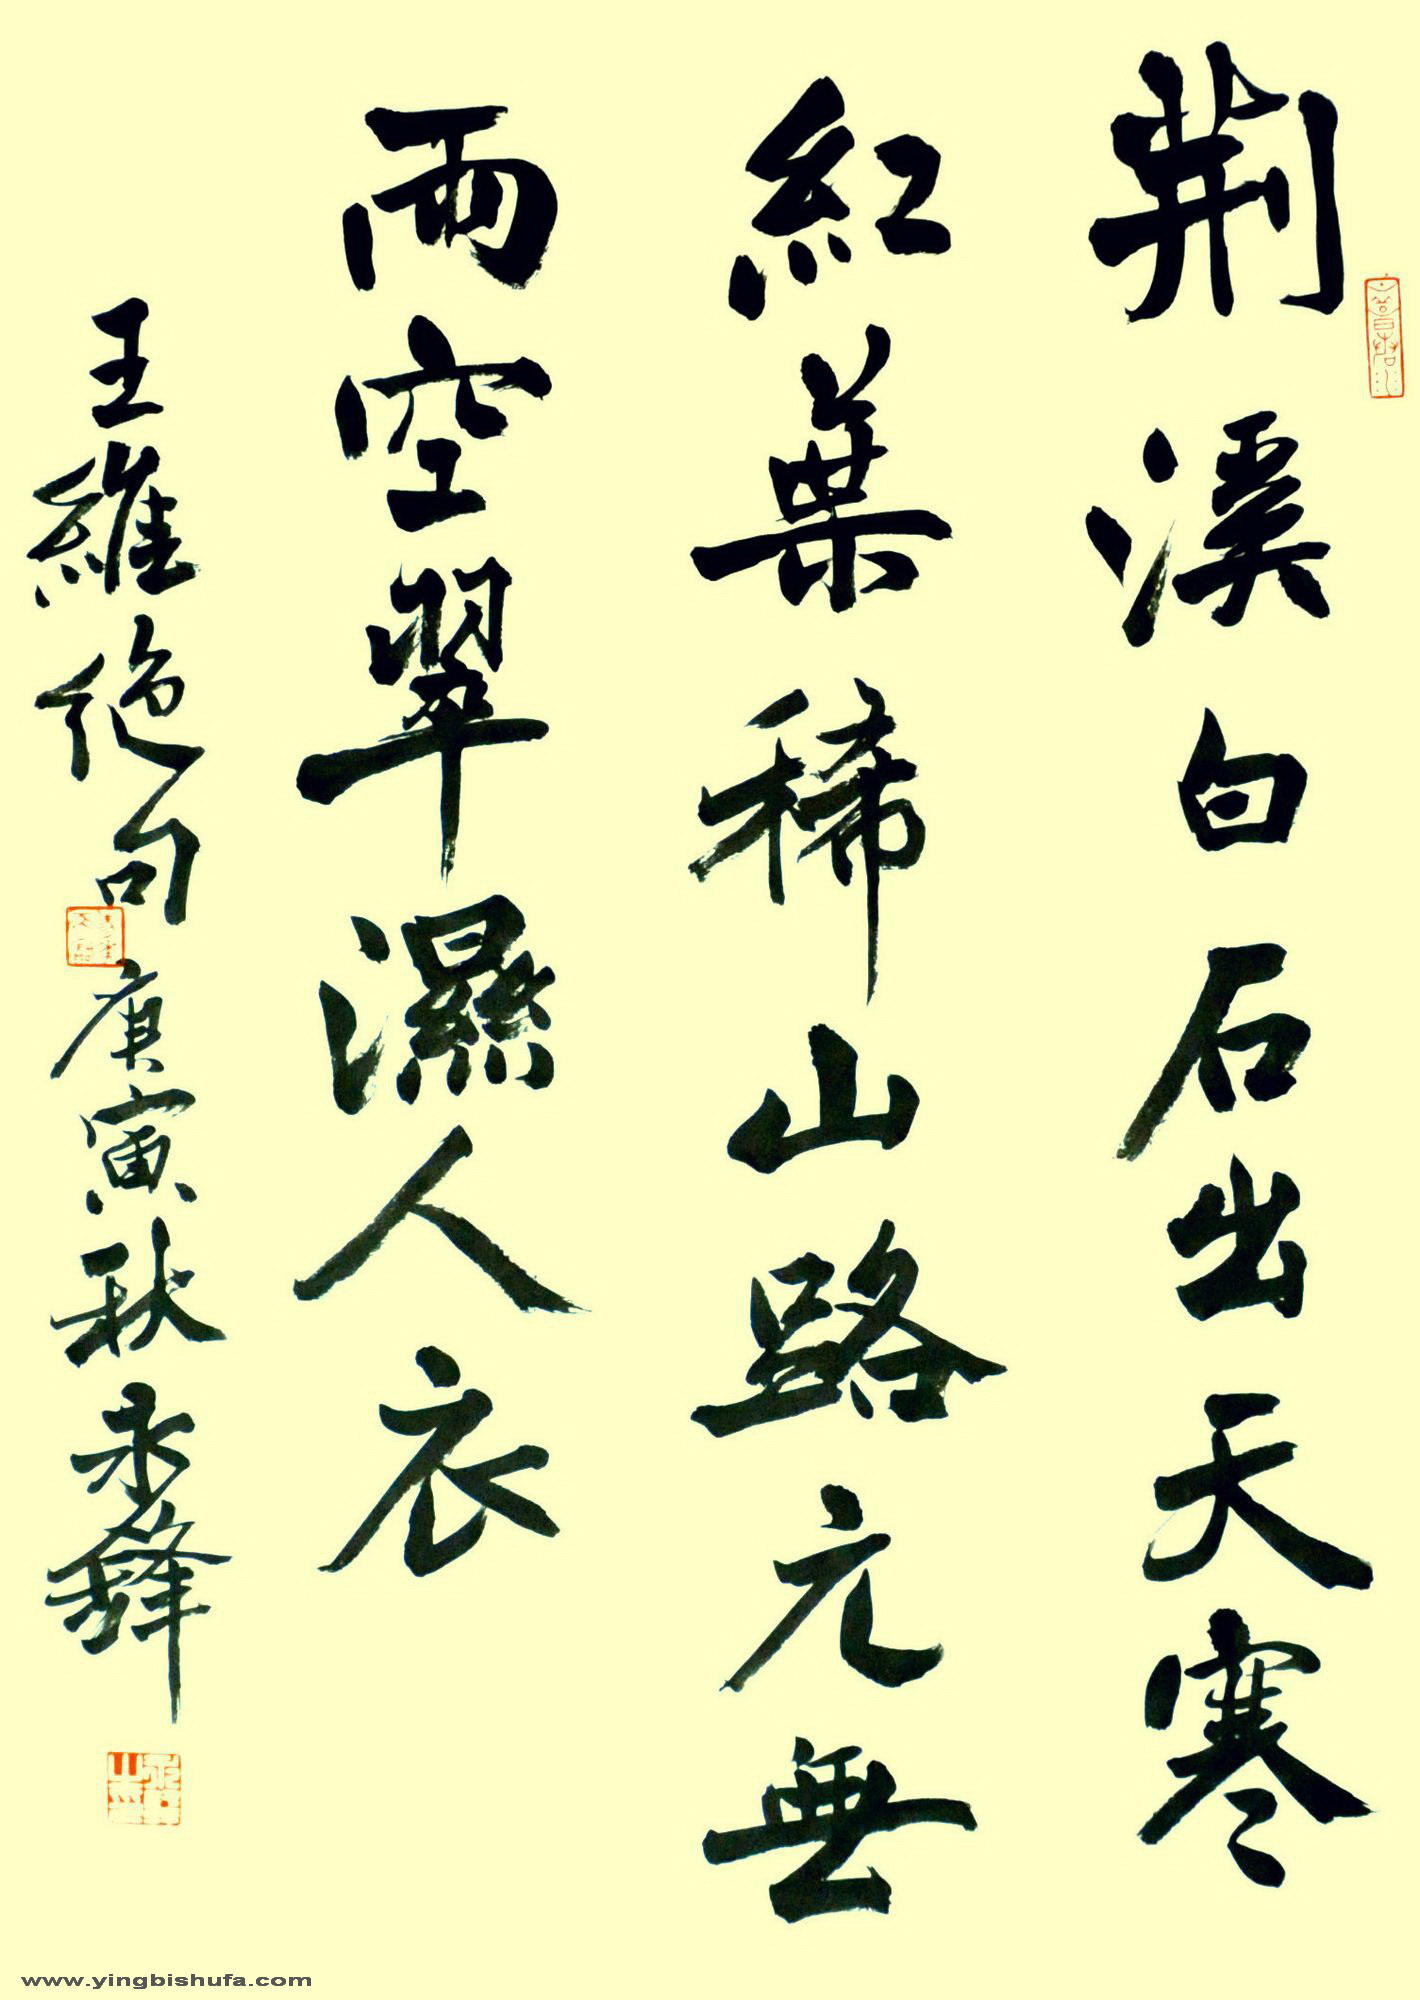 荆溪白石出天寒
紅葉稀山路元無
雨空翠濕人衣
王維絶句庚寅秋永鋒
www.yingbishufa.com